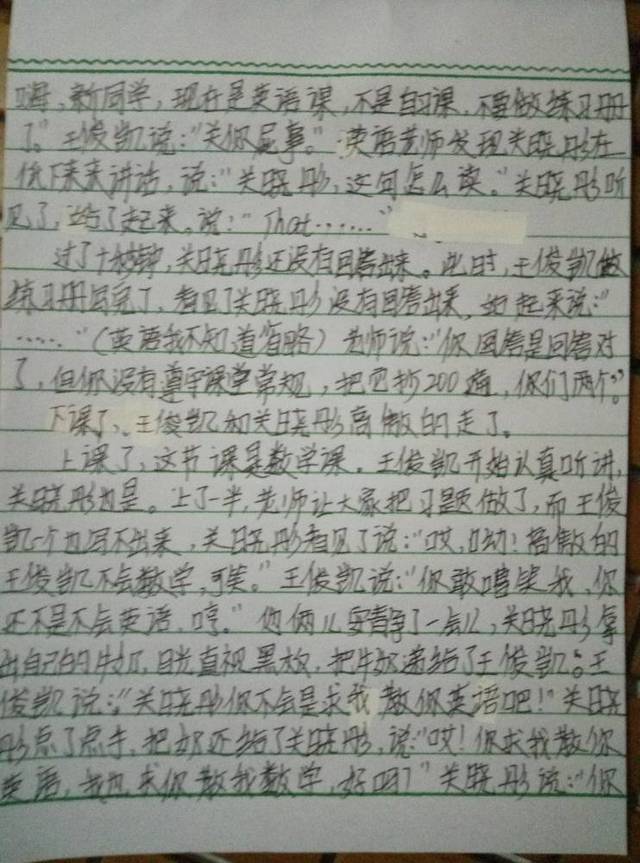 嗨，新同学，现在是英语课，不是自习课，不要做练习册
了。”王俊凯说：“关你屁事。”英语老师发现关晓彤在
低下来来讲话，说：“关晓彤，这句怎么读。”关晓彤听
见了，站了起来。说：“That……”
过了十秒钟，关晓彤还没有回答出来。此时，王俊凯做
练习册回完了，看见了关晓彤没有回答出来，她起来说：“
……”（英语我不知道省略）老师说：“你回答是回答对
了，但你没有遵守课堂常规，把它抄200遍，你们两个。”
下课了、王俊凯和关晓彤高傲的走了。
上课了，这节课是数学课。王俊凯开始认真听讲，
关晓彤也是。上了一半，老师让大家把习题做了，而王俊
凯一个也写不出来，关晓彤看见了说：“哎，呦！高傲的
王俊凯不会数学，可笑。”王俊凯说：“你敢嘲笑我，你
还不是不会英语，哼。”他俩儿安静了一会儿，关晓彤拿
出自己的牛奶，目光直视黑板，把牛奶递给了王俊凯。王
俊凯说：“关晓彤你不会是求我教你英语吧！”关晓
彤点了点手，把奶还给了关晓彤，说：“哎！你求我教你
英语，我也求你教我数学，好吗？”关晓彤说：“你